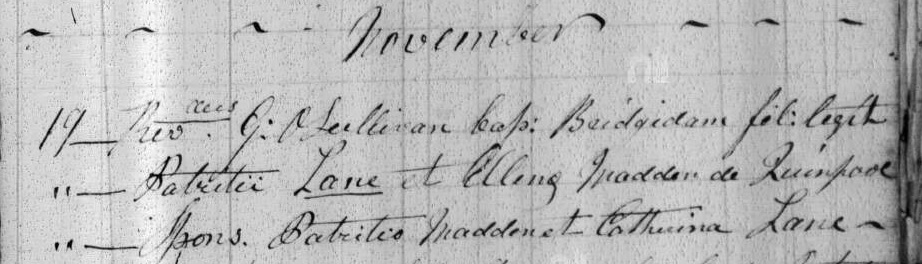 November
19 — Revdus G: O Sullivan bap: Bridgidam fil: legth
,, — Patritii Lane et Elleng Madden de Quinpool
,, — Spons. Patritio Madden et Catherina Lane —